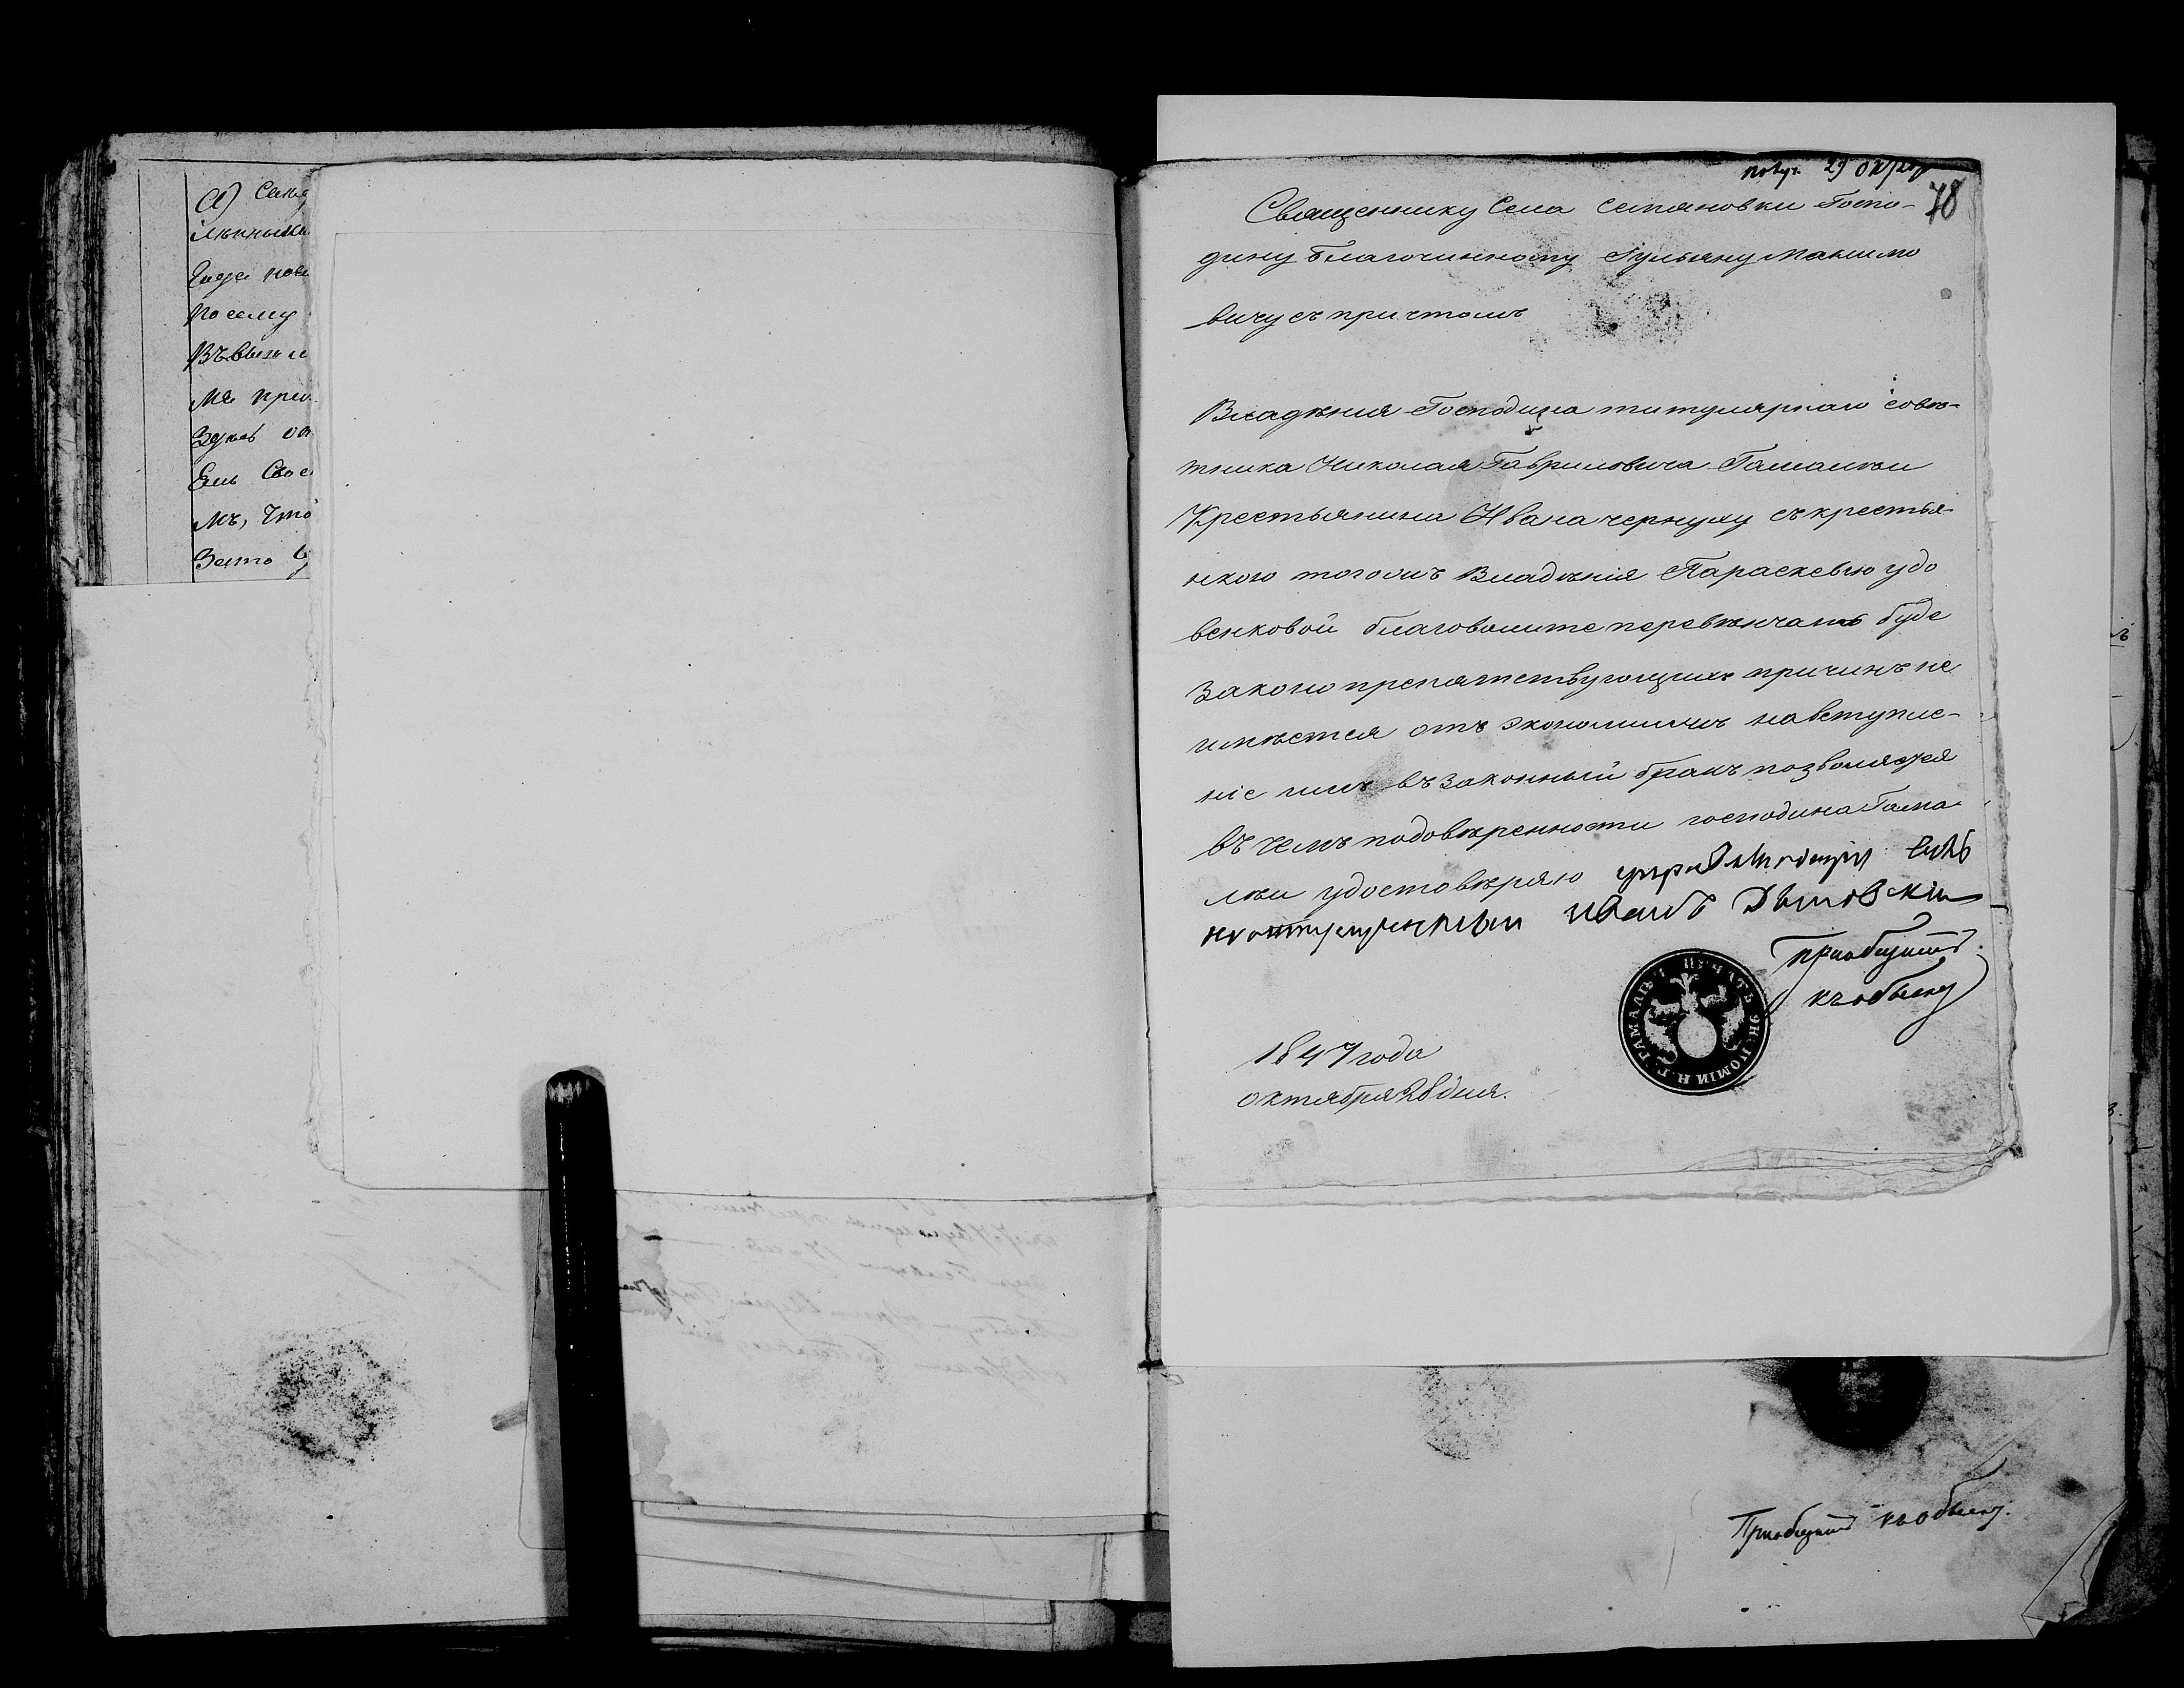 а) Сею
Года пов
По сему
мя при
Здѣсь
Емъ Свое
мъ, что
Зато
получ. 29 Октяб
78
Священнику Села Степановки Госпо-
дину благочинному Іульяну Максимо
вичу съ причтомъ
Владѣния Господина титулярнаго совѣ-
тника Николая Гавриловича Гамалѣи
Крестьянина Ивана чернуху съ крестья-
нкою тогожъ Владѣнія Параскевью удо
венковой благоволите перевѣнчать буде
Законо препятствующихъ причинъ не
имѣется отъ экономіижъ на вступле-
ніе имъ въ Законный бракъ позволяется
въ чемъ подовѣренности господина Гама-
лѣи удостовѣряю управляющій
Иванъ
Приобщить
къ обыску
ПЕЧАТЬ ЭКОНОМІИ Н. Г. ГАМАЛѢИ
1847 года
октября 28 дня.
Приобщить къ обыску.